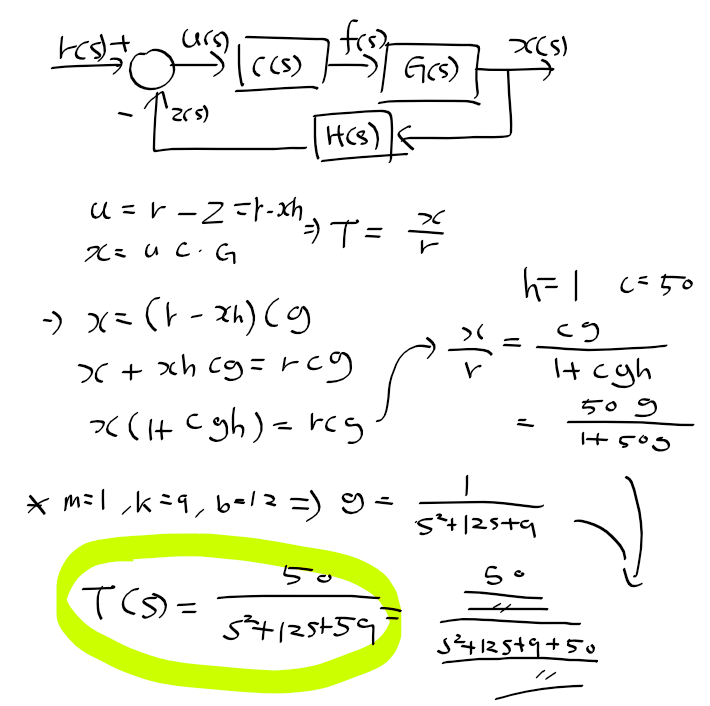 r(s) + u(s) C(s) f(s) G(s) x(s)
- z(s)
H(s)
u = r - z = r - xh
x = u c . G
=> T = x/r
h = 1 c = 50
-> x = (r - xh) cg
x + xh cg = r cg
x (1 + cgh) = rcg
-> x/r = cg/(1 + cgh)
= 50 g/(1 + 50g)
* m=1, k=9, b=12 => g = 1/(s²+12s+9)
T(s) = 50/(s²+12s+59) = 50/(s²+12s+9+50)